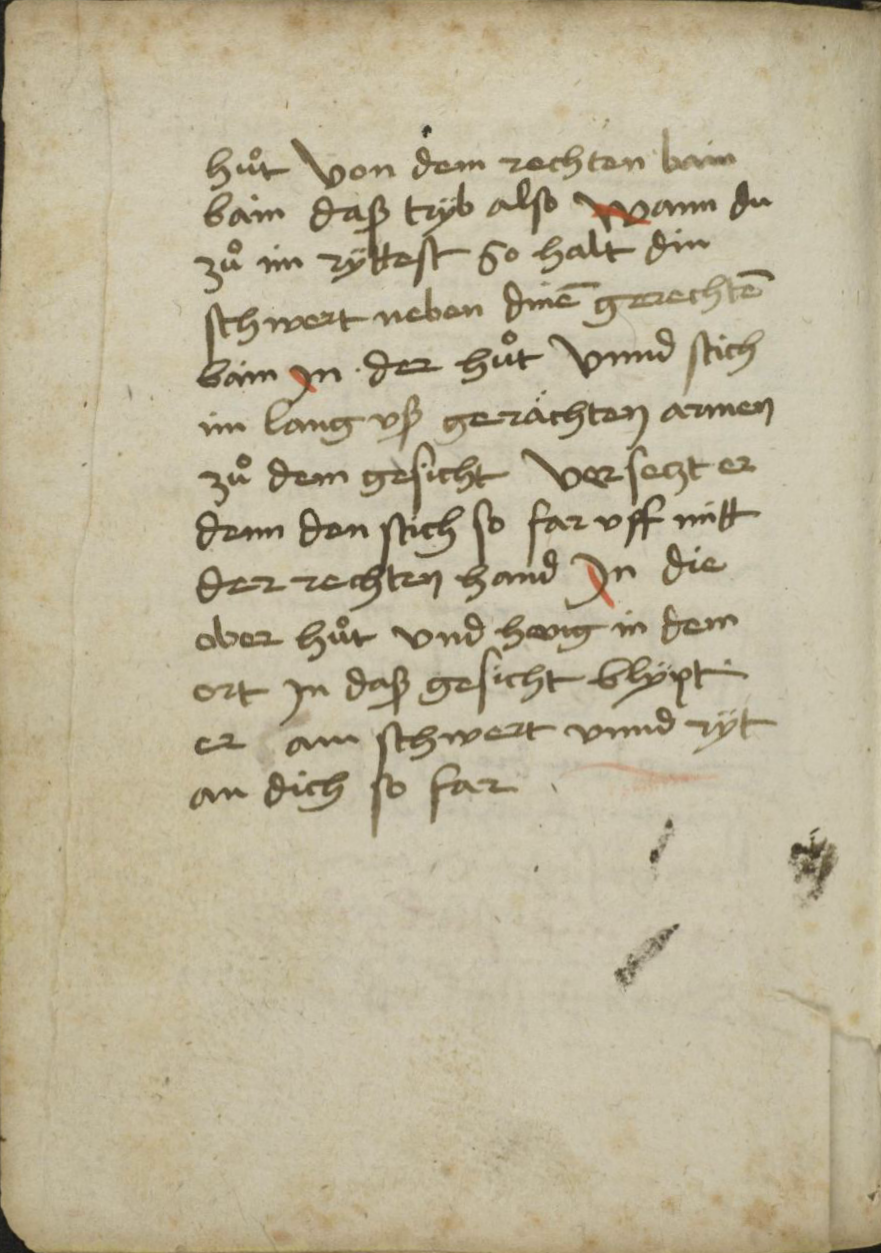 hůt Von dem rechten bain
bain daß tryb also Wann du
zů im rÿttest So halt din
schwert neben dinē gerechtē
bain In der hůt Vnnd stich
im lang vß gerächten armen
zů dem gesicht Versetzt er
denn den stich so far vff mitt
der rechten hand In die
ober hůt vnd heng in dem
ort In daß gesicht blÿpt
er am schwert vnnd rÿt
an dich so far